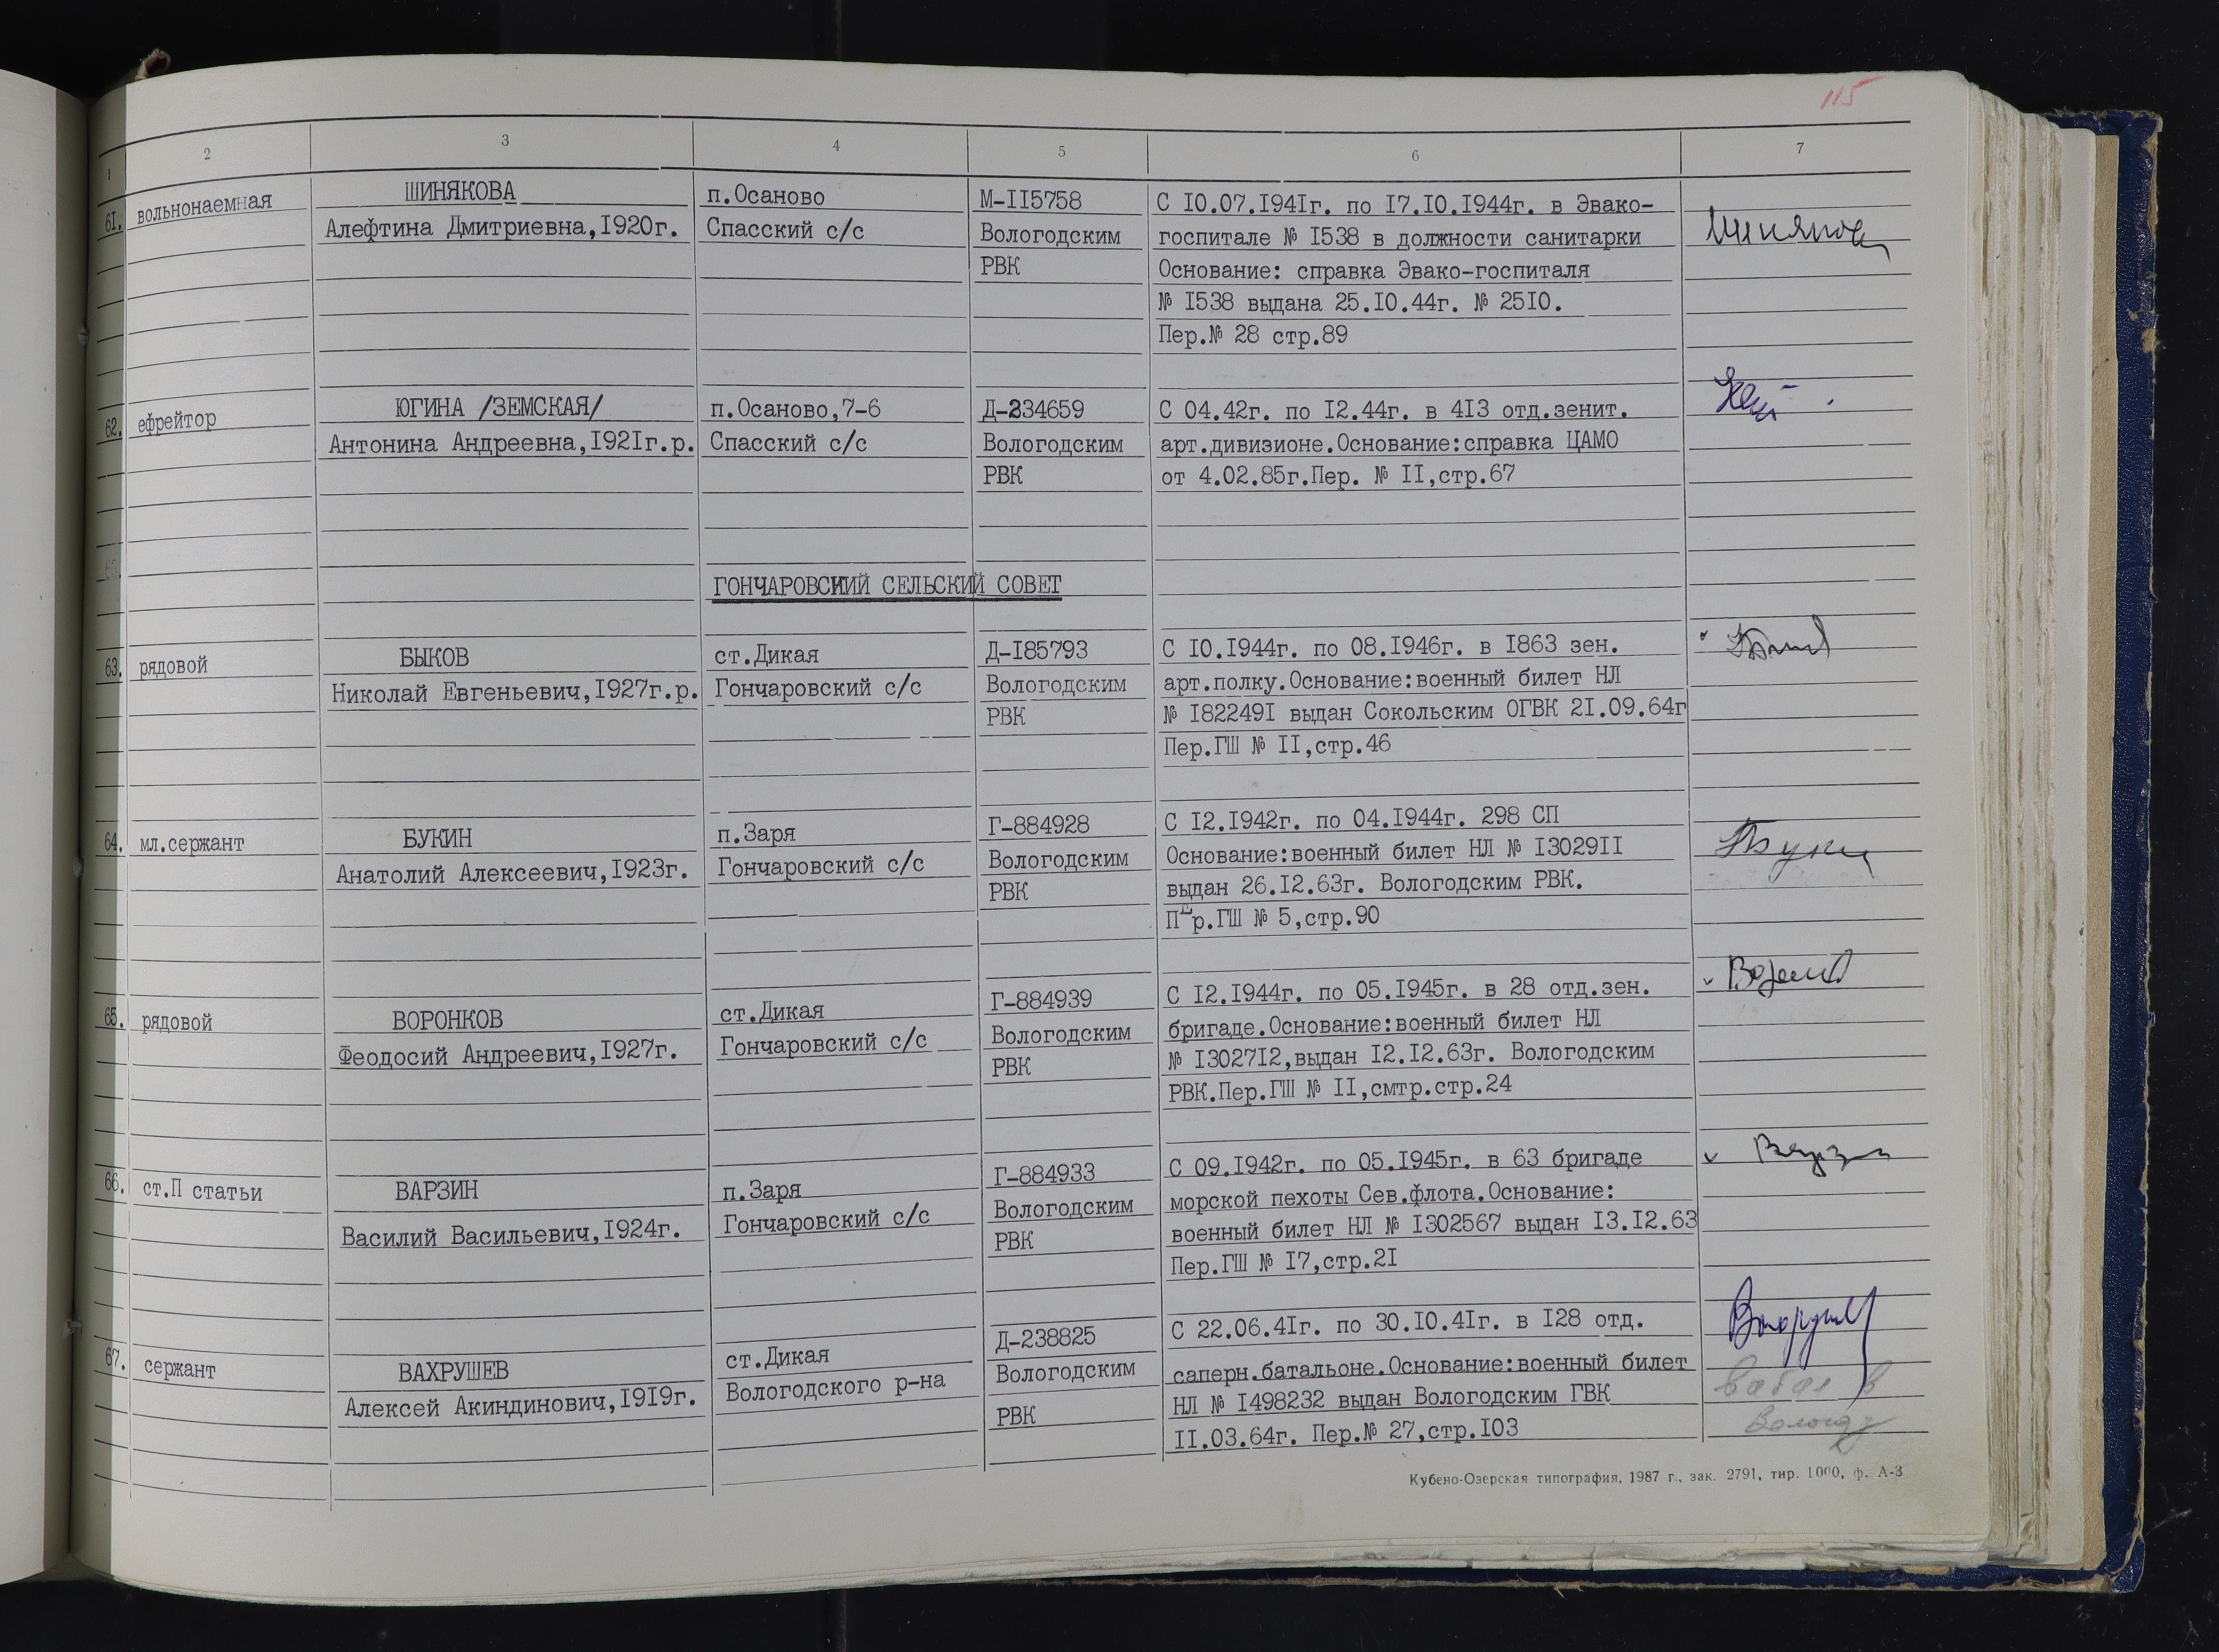 115
1 2 3 4 5 6 7
61. вольнонаемная
ШИНЯКОВА
Алефтина Дмитриевна,I920г.
п.Осаново
Спасский с/с
М-II5758
Вологодским
РВК
С I0.07.I94Iг. по I7.I0.I944г. в Эвако-
госпитале № I538 в должности санитарки
Основание: справка Эвако-госпиталя
№ I538 выдана 25.I0.44г. № 25I0.
Пер.№ 28 стр.89
62. ефрейтор
ЮГИНА /ЗЕМСКАЯ/
Антонина Андреевна,I92Iг.р.
п.Осаново,7-6
Спасский с/с
Д-234659
Вологодским
РВК
С 04.42г. по I2.44г. в 4I3 отд.зенит.
арт.дивизионе.Основание:справка ЦАМО
от 4.02.85г.Пер. № II,стр.67
ГОНЧАРОВСКИЙ СЕЛЬСКИЙ СОВЕТ
63. рядовой
БЫКОВ
Николай Евгеньевич,I927г.р.
ст.Дикая
Гончаровский с/с
Д-I85793
Вологодским
РВК
С I0.I944г. по 08.I946г. в I863 зен.
арт.полку.Основание:военный билет НЛ
№ I82249I выдан Сокольским ОГВК 2I.09.64г
Пер.ГШ № II,стр.46
64. мл.сержант
БУКИН
Анатолий Алексеевич,I923г.
п.Заря
Гончаровский с/с
Г-884928
Вологодским
РВК
С I2.I942г. по 04.I944г. 298 СП
Основание:военный билет НЛ № I3029II
выдан 26.I2.63г. Вологодским РВК.
ПЕр.ГШ № 5,стр.90
65. рядовой
ВОРОНКОВ
Феодосий Андреевич,I927г.
ст.Дикая
Гончаровский с/с
Г-884939
Вологодским
РВК
С I2.I944г. по 05.I945г. в 28 отд.зен.
бригаде.Основание:военный билет НЛ
№ I3027I2,выдан I2.I2.63г. Вологодским
РВК.Пер.ГШ № II,смтр.стр.24
66. ст.П статьи
ВАРЗИН
Василий Васильевич,I924г.
п.Заря
Гончаровский с/с
Г-884933
Вологодским
РВК
С 09.I942г. по 05.I945г. в 63 бригаде
морской пехоты Сев.флота.Основание:
военный билет НЛ № I302567 выдан I3.I2.63
Пер.ГШ № I7,стр.2I
67. сержант
ВАХРУШЕВ
Алексей Акиндинович,I9I9г.
ст.Дикая
Вологодского р-на
Д-238825
Вологодским
РВК
С 22.06.4Iг. по 30.I0.4Iг. в I28 отд.
саперн.батальоне.Основание:военный билет
НЛ № I498232 выдан Вологодским ГВК
II.03.64г. Пер.№ 27,стр.I03
Кубено-Озерская типография, 1987 г., зак. 2791, тир. 1000, ф. А-3